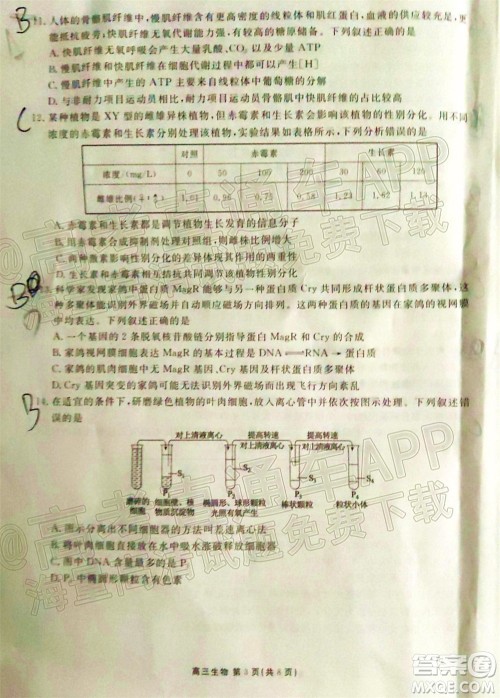 B
11. 人体的骨骼肌纤维中,慢肌纤维含有更高密度的线粒体和肌红蛋白,血液的供应较充足,更
能抵抗疲劳,快肌纤维无氧代谢能力强,有较高的糖原储备。下列叙述正确的是
A. 快肌纤维无氧呼吸会产生大量乳酸、CO₂以及少量ATP
B. 慢肌纤维和快肌纤维在细胞代谢过程中都可以产生[H]
C. 慢肌纤维中产生的ATP主要来自线粒体中葡萄糖的分解
D. 与非耐力项目运动员相比,耐力项目运动员骨骼肌中快肌纤维的占比较高
C
12. 某种植物是XY型的雌雄异株植物,但赤霉素和生长素可影响该植物的性别分化。用不同
浓度的赤霉素和生长素分别处理该植物,实验结果如下表所示。下列分析错误的是
对照 赤霉素 生长素
浓度(mg/L) 0 50 100 200 30 60 120
雌雄比例(♀:♂)
A. 赤霉素和生长素都是调节植物生长发育的信息分子
B. 用赤霉素合成抑制剂处理对照组,则雌株比例增大
C. 性别分化的差异体现其作用的两重性
D. 生长素和赤霉素通过相互拮抗共同调节性别分化
B
13. 科学家发现家鸽中蛋白质MagR能够与另一种蛋白质Cry共同形成杆状蛋白质多聚体,这
种多聚体能识别外界磁场并自动顺磁场方向排列。这两种蛋白质的基因在家鸽的视网膜
中共同表达。下列叙述正确的是
A. 一个基因的2条脱氧核苷酸链分别指导蛋白MagR和Cry的合成
B. 家鸽视网膜细胞表达MagR的基本过程是DNA⇌RNA→蛋白质
C. 家鸽的肌肉细胞中表达MagR和Cry蛋白质的基因
D. Cry基因突变的家鸽可能无法识别外界磁场而飞行方向紊乱
B
14. 在适宜的条件下,研磨绿色植物的叶肉细胞,放入离心管中并依次按图示处理。下列叙述错
误的是
对上清液离心 提高转速 对上清液离心 提高转速 对上清液离心
S₁ S₂ S₃ S₄
P₁ P₂ P₃ P₄
磨碎的细胞 细胞壁、核物质沉淀物 椭圆形、球形颗粒光照有氧产生 棒状颗粒 粒状小体
A. 图示分离出不同细胞器的方法叫差速离心法
B. 将叶肉细胞直接放在水中吸水涨破释放细胞器
C. 图中DNA含量最多的是P₁
D. P₂中椭圆形颗粒含有色素
高三生物 第3页(共8页)